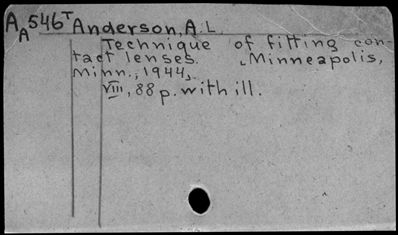 AA546T Anderson, A. L.
Technique of fitting con-
tact lenses. Minneapolis,
Minn., 1944.
VIII, 88 p. with ill.